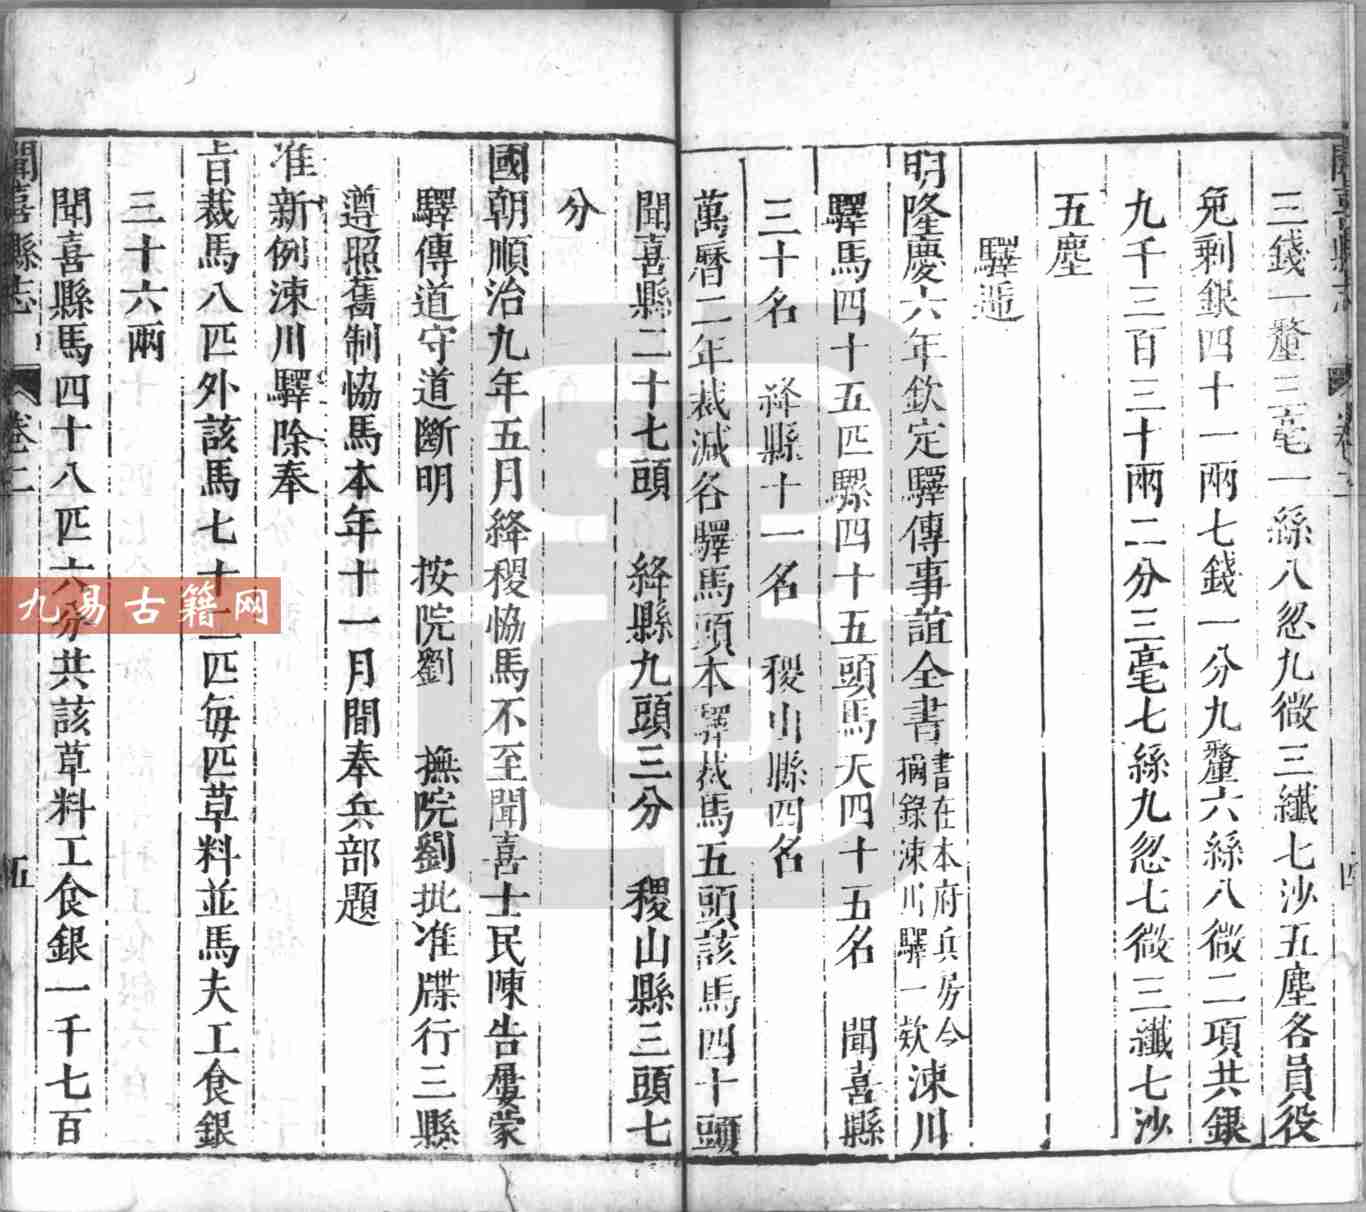 三錢一釐三毫一絲八忽九微三纖七沙五塵各員役
免剩銀四十一兩七錢一分九釐六絲八微二項共銀
九千三百三十兩二分三毫七絲九忽七微三纖七沙
五塵
驛遞
明隆慶六年欽定驛傳事誼全書書在本府兵房今摘錄涑川驛一欵涑川
驛馬四十五匹騾四十五頭馬夫四十五名　聞喜縣
三十名　絳縣十一名　稷山縣四名
萬曆二年裁減各驛馬頭本驛裁馬五頭該馬四十頭
聞喜縣二十七頭　絳縣九頭三分　稷山縣三頭七
分
國朝順治九年五月絳稷恊馬不至聞喜士民陳告屢蒙
驛傳道守道斷明　按院劉　撫院劉批准牒行三縣
遵照舊制恊馬本年十一月間奉兵部題
准新例涑川驛除奉
旨裁馬八匹外該馬七十二匹每匹草料並馬夫工食銀
三十六兩
聞喜縣馬四十八匹六分共該草料工食銀一千七百
聞喜縣志　卷二　五
九易古籍网